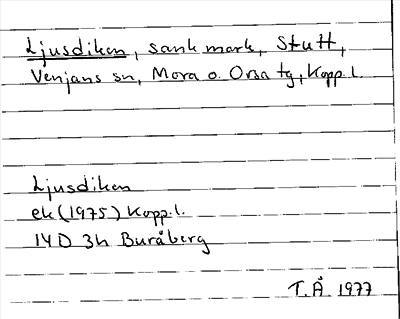 Ljusdiken, sank mark, Stutt,
Venjans sn, Mora o. Orsa tg, Kopp.l.
Ljusdiken
ek (1975) Kopp.l.
14D 3h Buråberg
T.Å 1977